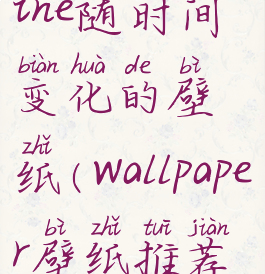 the随时间
biàn huà de bì
变化的壁
zhǐ
纸(wallpape
bì zhǐ tuī jiàn
r壁纸推荐